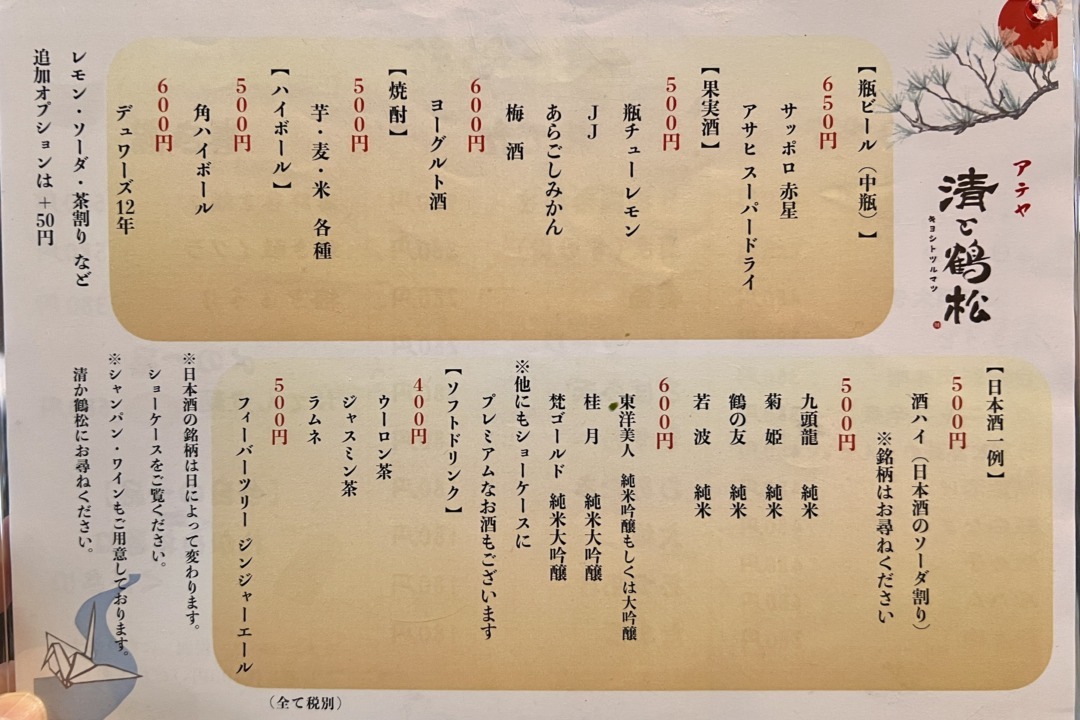 アテヤ
清と鶴松
キヨシトツルマツ
【瓶ビール（中瓶）】
650円
サッポロ 赤星
アサヒ スーパードライ
【果実酒】
500円
瓶チューレモン
JJ
あらごしみかん
梅 酒
600円
ヨーグルト酒
【焼酎】
500円
芋・麦・米 各種
【ハイボール】
500円
角ハイボール
600円
デュワーズ12年
レモン・ソーダ・茶割り など
追加オプションは＋50円
【日本酒一例】
500円
酒ハイ（日本酒のソーダ割り）
※銘柄はお尋ねください
500円
九頭龍 純米
菊 姫 純米
鶴の友 純米
若 波 純米
600円
東洋美人 純米吟醸もしくは大吟醸
桂 月 純米大吟醸
梵ゴールド 純米大吟醸
※他にもショーケースに
プレミアムなお酒もございます
【ソフトドリンク】
400円
ウーロン茶
ジャスミン茶
ラムネ
500円
フィーバーツリー ジンジャーエール
※日本酒の銘柄は日によって変わります。
ショーケースをご覧ください。
※シャンパン・ワインもご用意しております。
清か鶴松にお尋ねください。
（全て税別）